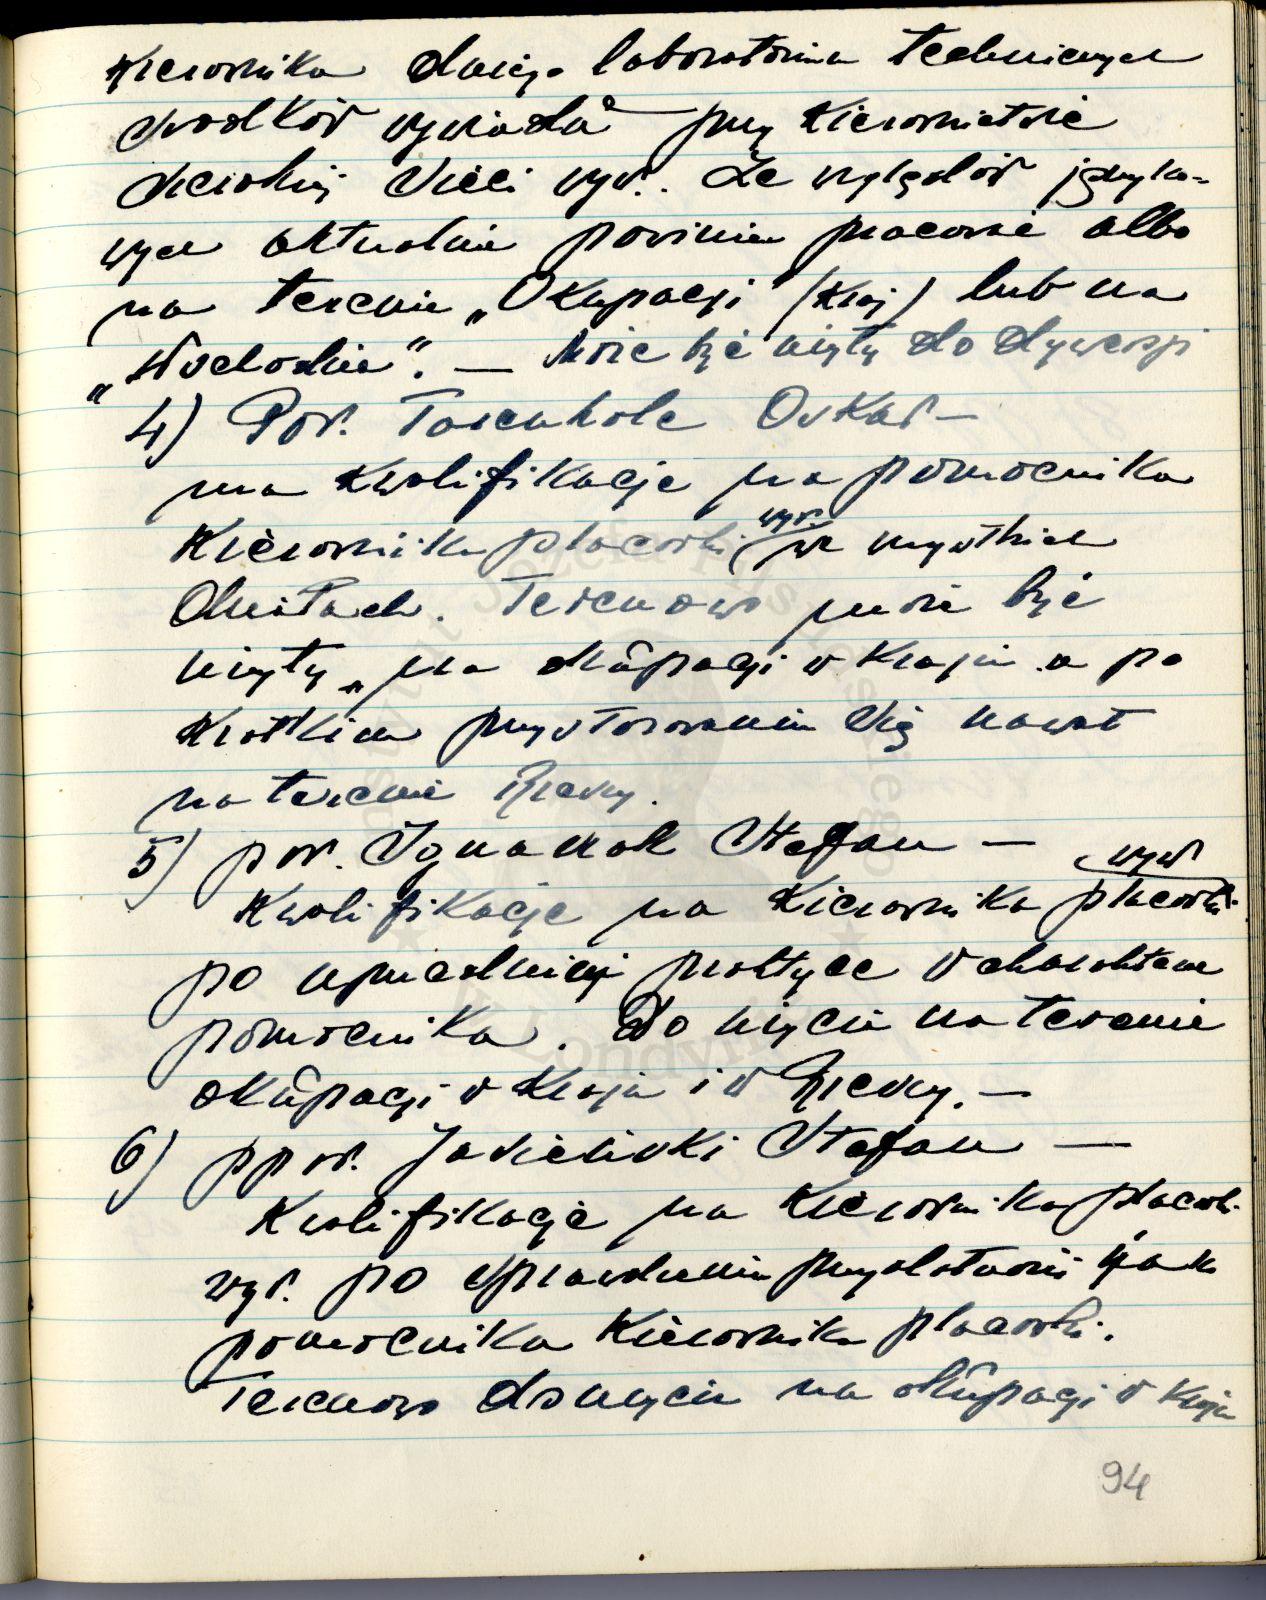 Kierownika dużego laboratorium technicznych
środków wywiadu przy Kierownictwie
szerokiej sieci wyw. Ze względów języko-
wych aktualnie powinien pracować albo
na terenie „Okupacji (Kraj) lub na
„Wschodzie”. — Może być użyty do dywersji
4) Por. Farenholc Oskar —
ma kwalifikacje na pomocnika
Kierownika placówki wyw. we wszystkich
działach. Terenowo może być
użyty „na okupacji w Kraju a po
krótkim przystosowaniu się nawet
na terenie Rzeszy.
5) por. Ignaszak Stefan —
Kwalifikacje na Kierownika placówki wyw
po uprzedniej praktyce w charakterze
pomocnika. Do użycia na terenie
okupacji w Kraju i w Rzeszy. —
6) ppor. Jasieński Stefan —
Kwalifikacje na Kierownika placówki
wyw. po sprawdzeniu przydatności jako
pomocnika Kierownika placówki.
Terenowo do użycia na okupacji w Kraju
94
Instytut Józefa Piłsudskiego
w Londynie